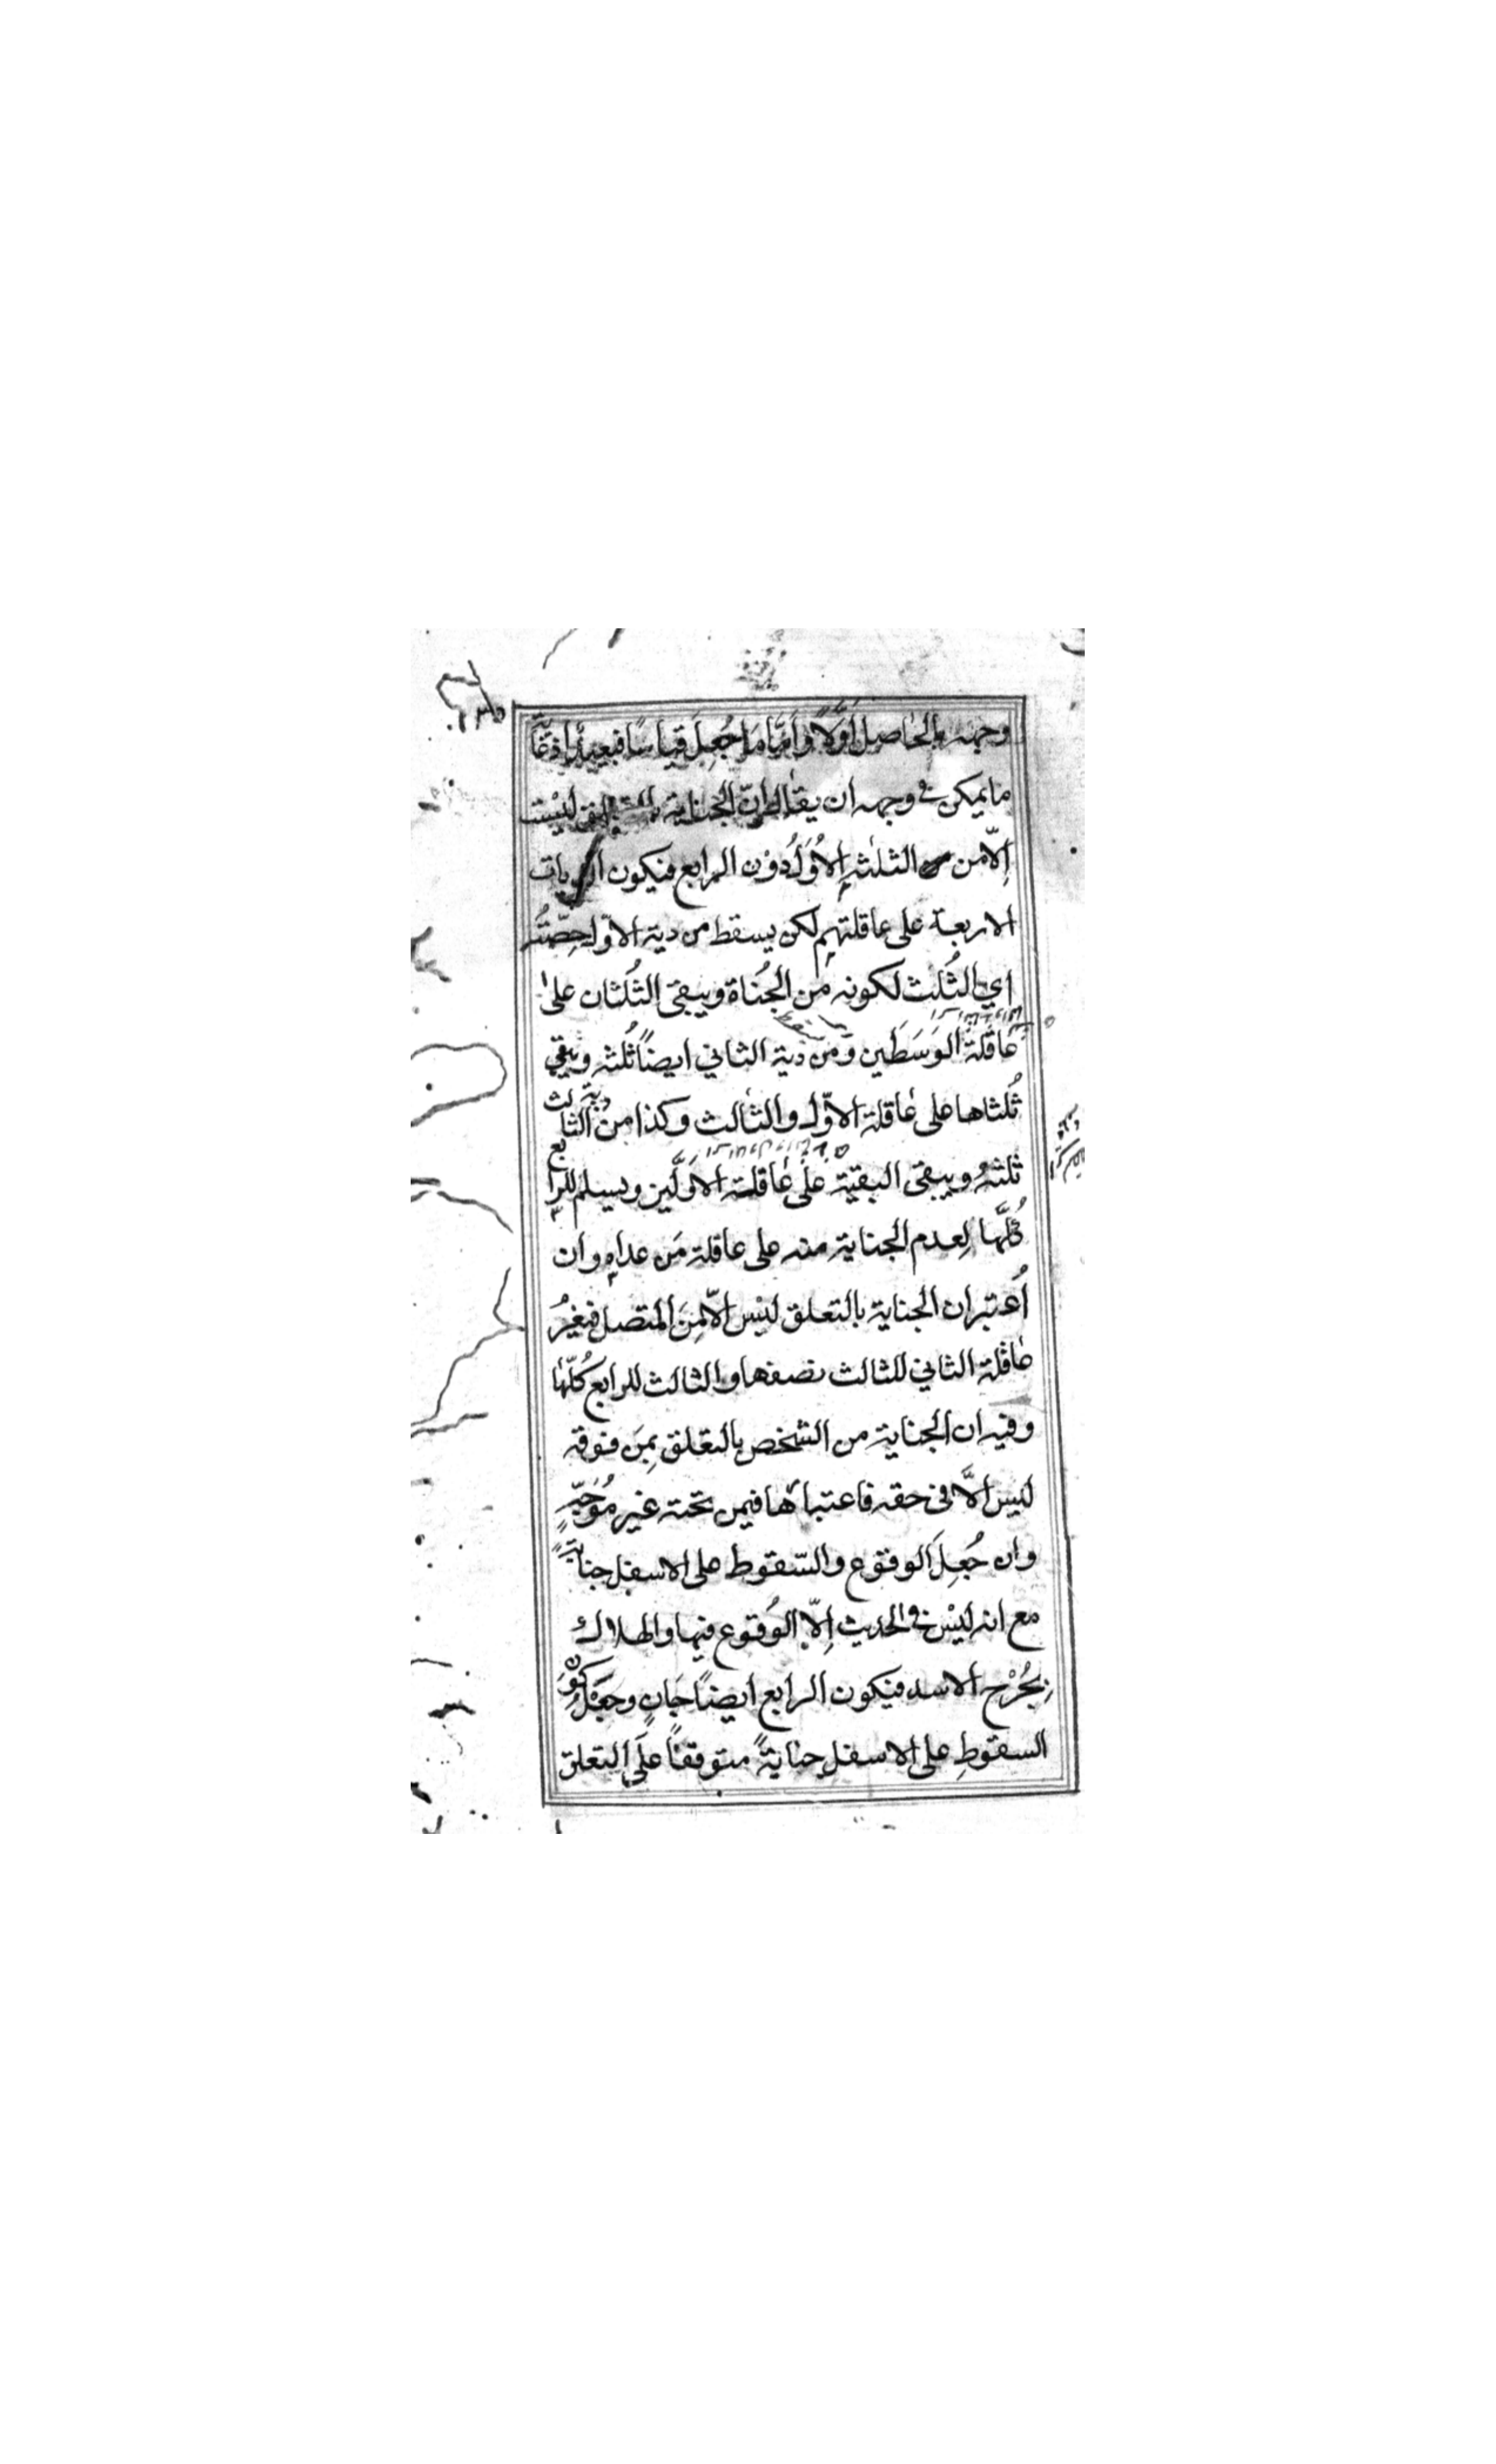 وجهه بالحاصل اَوَّلاً واَمَّا مَا جُعِلَ قياسًا فبعيدٌ اِذ غاية
ما يمكن في وجهه ان يقال اِنّ الجناية بالتعلق ليْسَت
اِلّا من الثلٰثه الاُوَلُ دوْن الرابع فيكون الديات
الاربعة على عاقلتهم لكن يسقط من دية الاوّل حِصَّتُه
اي الثُلث لكونه من الجُناة ويبقى الثُلثان على
عاقلة الوَسَطَين ومن دية الثاني ايضًا ثُلثه ويبقى
ثُلثاها على عاقلة الاوّل والثالث وكذا من دية الثالث
ثلثهُ ويبقى البقية على عاقلة الاوّلَين ويسلم للرابع
كُلَّها لِعدم الجناية منه على عاقلة مَن عداهِ وان
اُعتبر ان الجناية بالتعلق ليْس الاّ مِنَ المتصل فيغرُ
عاقلة الثاني للثالث نصفها والثالث للرابع كُلّها
وفيه ان الجناية من الشخص بالتعلق بِمَن فوقه
ليس الاَّ في حقه فاعتبارُها فيمن تحته غير مُوَجّهٍ
وان جُعِلَ الوقوع والسّقوط على الاسفل جنايةً
مع انه ليْسَ في الحديث اِلّا الوُقوع فيها والهلاك
بِجُرْح الاسد فيكون الرابع ايضًا جَانٍ وجَعْل كَوْنِ
السقوطِ على الاسفل جنايةً متوقفًا عَلَى التعلق